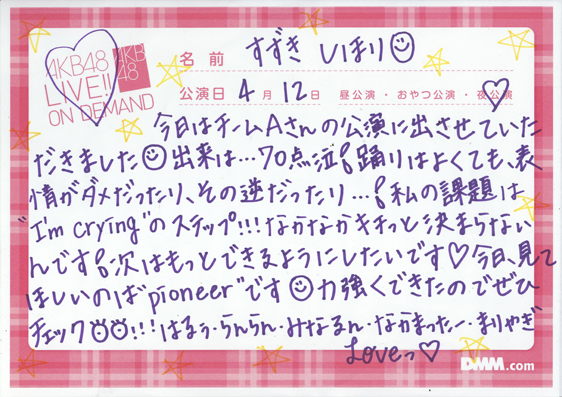 AKB48
LIVE!!
ON DEMAND
AKB
48
名前 すずき しほり
公演日 4月12日 昼公演・おやつ公演・夜公演
今日はチームAさんの公演に出させていた
だきました 出来は…70点泣 踊りはよくても、表
情がダメだったり、その逆だったり… 私の課題は
"I'm crying"のステップ!!! なかなかキチっと決まらない
んです 次はもっとできるようにしたいです♡今日、見て
ほしいのは"pioneer"です 力強くできたのでぜひ
チェック!!! はるぅ・らんらん・みなるん・なかまったー・まりやぎ
Loveっ♡
DMM.com